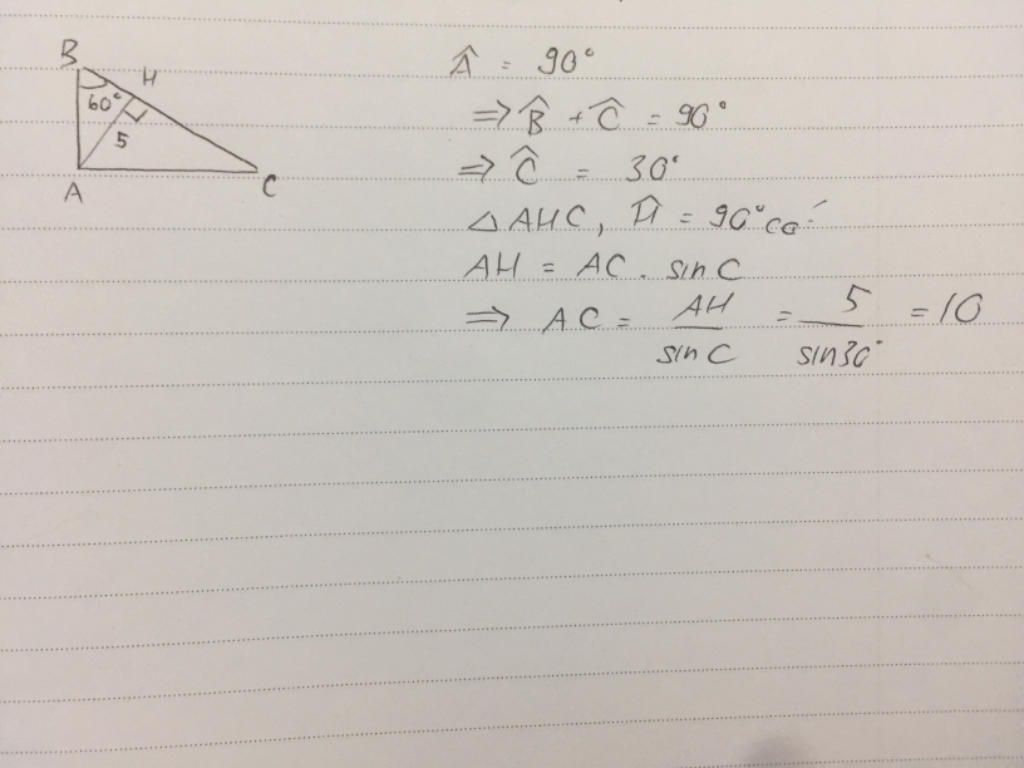 B
H
60°
5
A
C
Â = 90°
⇒ B̂ + Ĉ = 90°
⇒ Ĉ = 30°
△AHC, Ĥ = 90° có
AH = AC . sin C
⇒ AC = AH / sin C = 5 / sin30° = 10